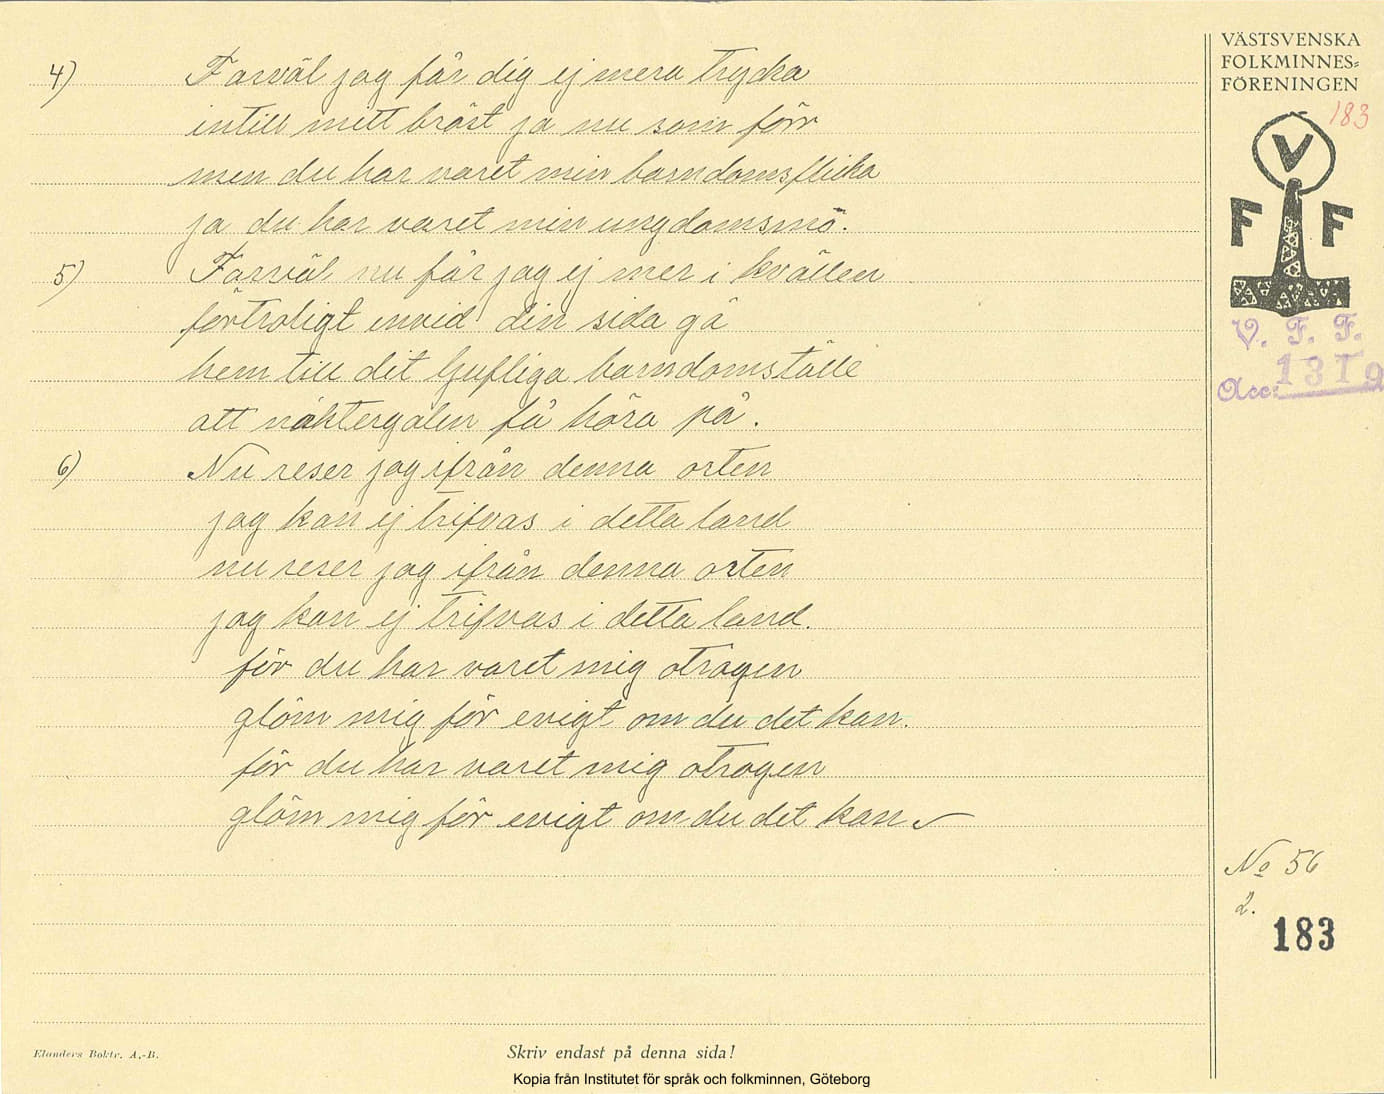 4) Farväl jag får dig ej mera trycka
intill mitt bröst ja nu som förr
men du har varet min barndomsflicka
ja du har varet min ungdomsmö.
5) Farväl nu får jag ej mer i kvällen
förtroligt invid din sida gå
hem till dit ljufliga barndomställe
att näktergalen få höra på.
6) Nu reser jag ifrån denna orten
jag kan ej trifvas i detta land
nu reser jag ifrån denna orten
jag kan ej trifvas i detta land.
för du har varet mig otrogen
glöm mig för evigt om du det kan.
för du har varet mig otrogen
glöm mig för evigt om du det kan
VÄSTSVENSKA
FOLKMINNES=
FÖRENINGEN
183
V
F F
V. F. F.
Acc: 1319
No 56
2.
183
Elanders Boktr. A.-B.
Skriv endast på denna sida!
Kopia från Institutet för språk och folkminnen, Göteborg